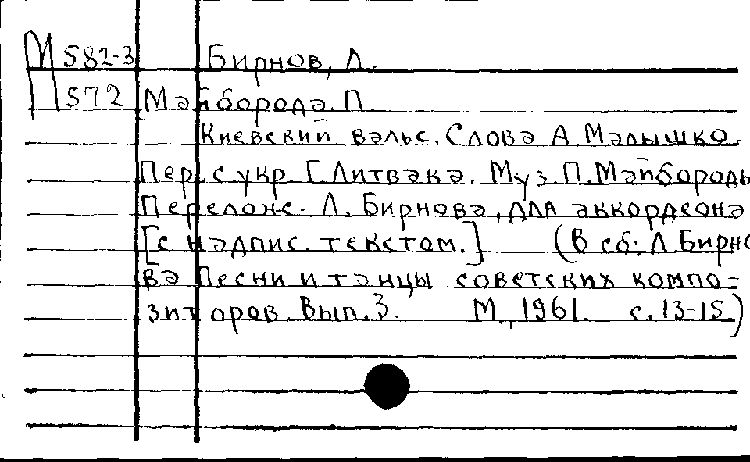 М 582-3 Бирнов, Л.
П 572 Майборода. П.
Киевский вальс. Слова А. Малышко
Пер. с укр. Г. Литвака. Муз. П. Майбороды
Перелож. Л. Бирнова, для аккордеона
[с надпис. текстом.] (В сб: Л. Бирно
ва Песни и танцы советских компо=
зиторов. Вып. 3. М., 1961. с. 13-15)